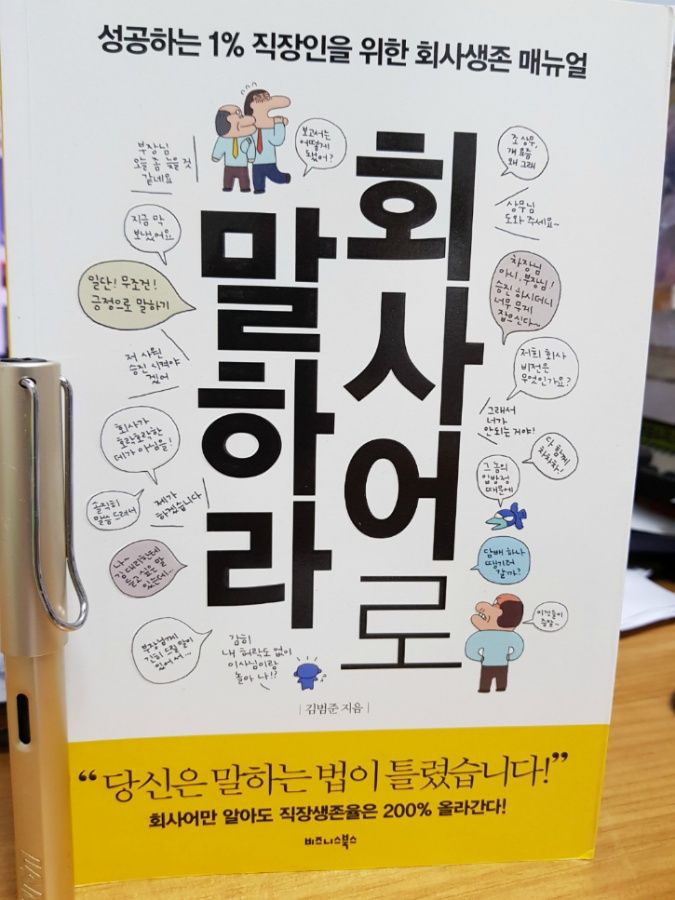 성공하는 1% 직장인을 위한 회사생존 매뉴얼
회사어로
말하라
부장님
오늘 좀 늦을 것
같네요
보고서는
어떻게
됐어?
조 상무,
걔 요즘
왜 그래
지금 막
보냈어요
상무님
도와 주세요~
일단! 무조건!
긍정으로 말하기
차장님
아니, 부장님!
승진 하시더니
너무 무게
잡으신다~
저 사원
승진 시켜야
겠어
저희 회사
비전은
무엇인가요?
그래서
너가
안되는 거야!
회사가
호락호락한
데가 아님을!
다 함께
차차차!
그 놈의
입방정
때문에
솔직히
말씀 드려서
제가
하겠습니다
담배 하나
땡기러
갈까?
나~
김대리한테
듣고 싶은 말
있는데...
이것들이
증말~
부장님께
긴히 드릴 말이
있어서...
감히
내 허락도 없이
이사님이랑
놀아 나!?
김범준 지음
“당신은 말하는 법이 틀렸습니다!”
회사어만 알아도 직장생존율은 200% 올라간다!
비즈니스북스